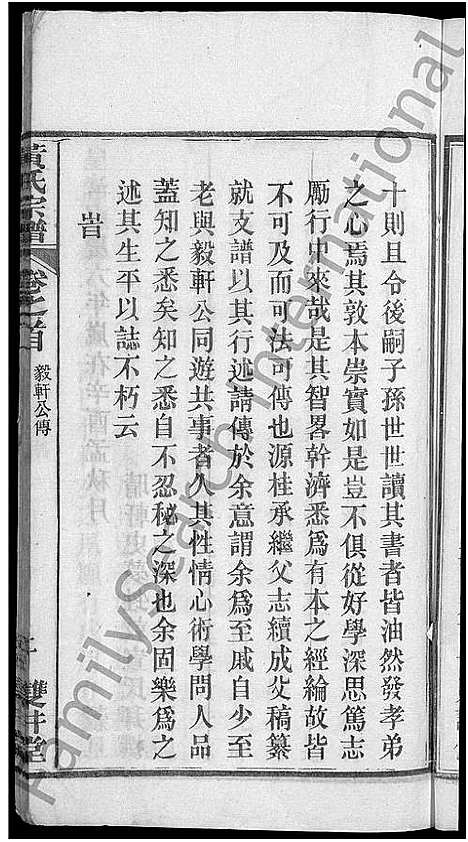 十則且令後嗣子孫世世讀其書者皆油然發孝弟
之心焉其敦本崇實如是豈不俱從好學深思篤志
勵行中來哉是其智畧幹濟悉爲有本之經綸故皆
不可及而可法可傳也源桂承繼父志續成父稿纂
就支譜以其行述請傳於余意謂余爲至戚自少至
老與毅軒公同遊共事者久其性情心術學問人品
蓋知之悉矣知之悉自不忍秘之深也余固樂爲之
述其生平以誌不朽云
旹
黃氏宗譜
卷之首
毅軒公傳
雙井堂
FamilySearch International